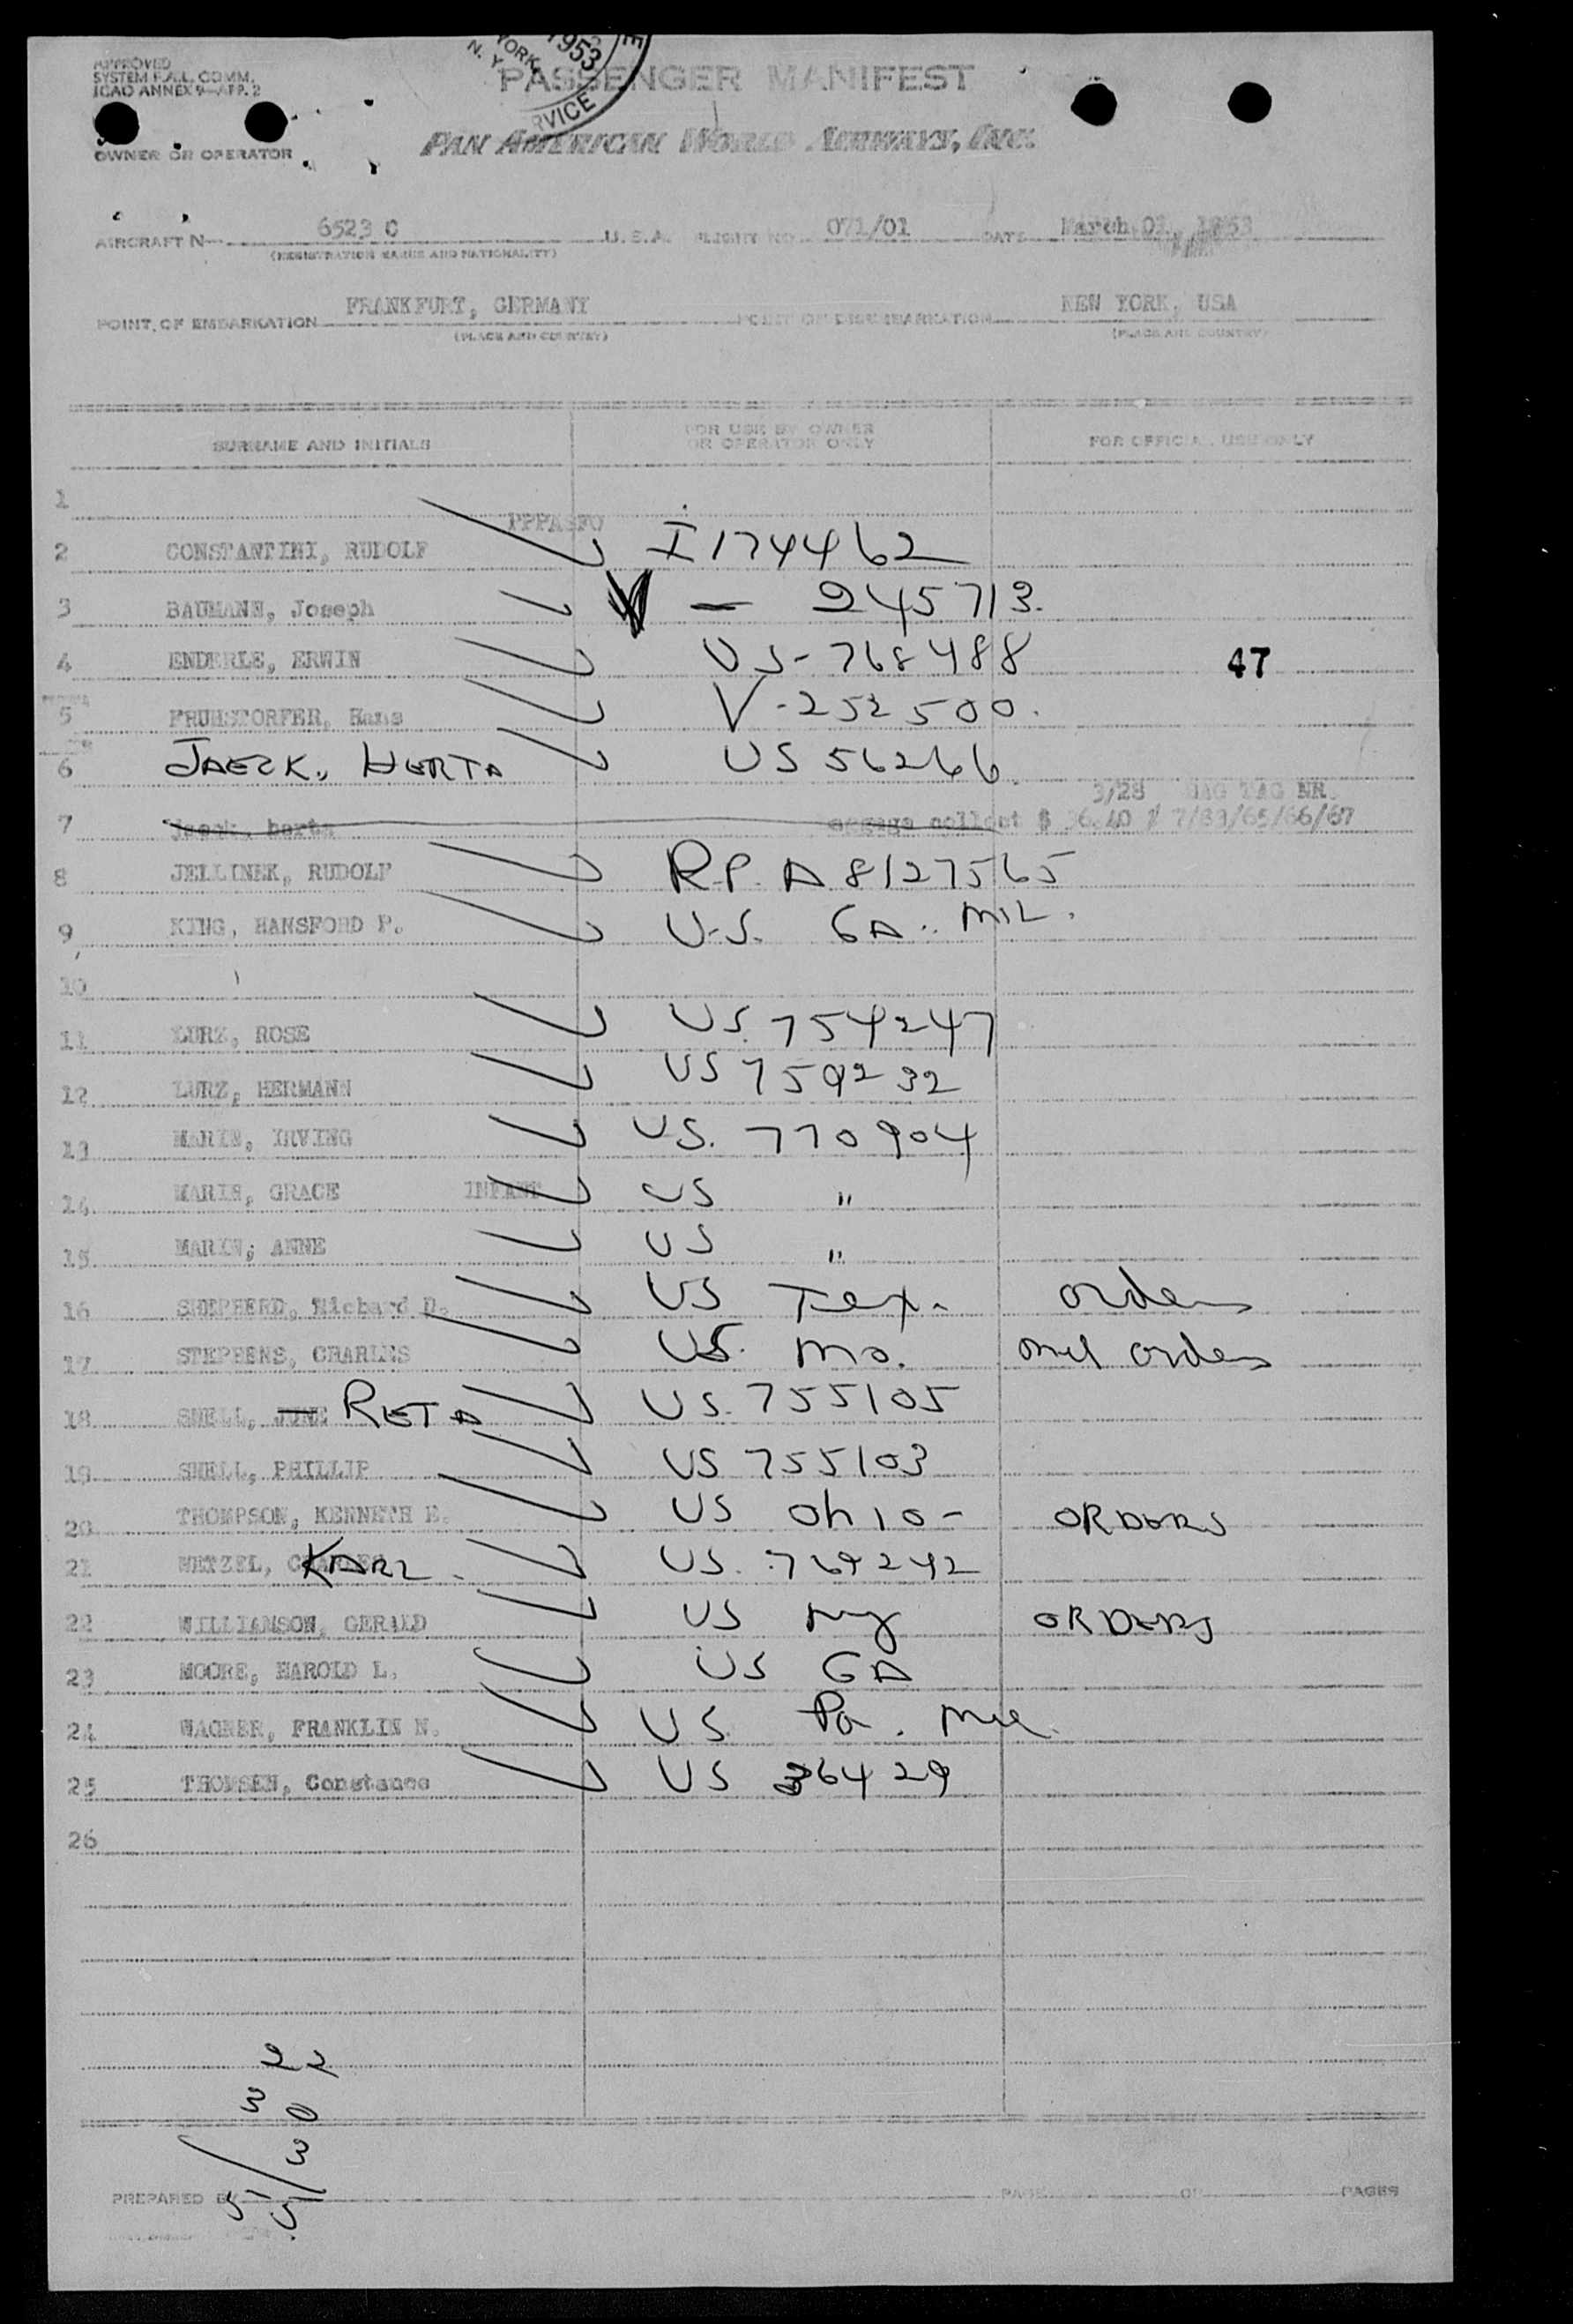 YORK, N. Y. 1953
RVICE
APPROVED
SYSTEM FALL COMM.
ICAO ANNEX 9—APP. 2
PASSENGER MANIFEST
OWNER OR OPERATOR
PAN AMERICAN WORLD AIRWAYS, INC.
AIRCRAFT N 6523 C U.S.A. FLIGHT NO 071/01 DATE March 01, 1953
(REGISTRATION MARKS AND NATIONALITY)
POINT OF EMBARKATION FRANKFURT, GERMANY POINT OF DISEMBARKATION NEW YORK, USA
(PLACE AND COUNTRY) (PLACE AND COUNTRY)
SURNAME AND INITIALS FOR USE BY OWNER OR OPERATOR ONLY FOR OFFICIAL USE ONLY
1
2 CONSTANTINI, RUDOLF I 174462
3 BAUMANN, Joseph V — 245713.
4 ENDERLE, ERWIN US-768488 47
5 FRUHSTORFER, Hans V-252500.
6 JAECK, HERTA US 56266
3/28 BAG TAG NR.
7 Jaeck, herta collect $ 36.40 7/83/65/66/67
8 JELLINEK, RUDOLF R.P. A 8127565
9 KING, HANSFORD P. U.S. GA. MIL.
10
11 LURZ, ROSE US 754247
12 LURZ, HERMANN US 759232
13 MARIN, IRVING US. 770904
14 MARIN, GRACE INFANT US "
15 MARIN, ANNE US "
16 SHEPHERD, Richard D. US Tex. Orders
17 STEPHENS, CHARLES US. Mo. mil orders
18 SNELL, JUNE RETA US. 755105
19 SNELL, PHILLIP US 755103
20 THOMPSON, KENNETH E. US Ohio - ORDERS
21 WETZEL, CHARLES KARL US. 769242
22 WILLIAMSON, GERALD US NY ORDERS
23 MOORE, HAROLD L. US GA
24 WAGNER, FRANKLIN N. US. Pa. Mil.
25 THOMSEN, Constance US 36429
26
22
PREPARED BY PAGE OF PAGES